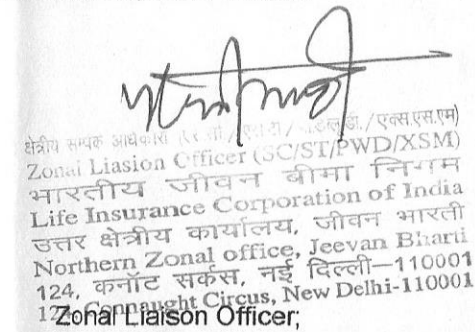 क्षेत्रीय सम्पर्क अधिकारी /एक्स.एस.एम)
Zonal Liasion Officer (SC/ST/PWD/XSM)
भारतीय जीवन बीमा निगम
Life Insurance Corporation of India
उत्तर क्षेत्रीय कार्यालय, जीवन भारती
Northern Zonal office, Jeevan Bharti
124, कनॉट सर्कस, नई दिल्ली-110001
124, Connaught Circus, New Delhi-110001
Zonal Liaison Officer;